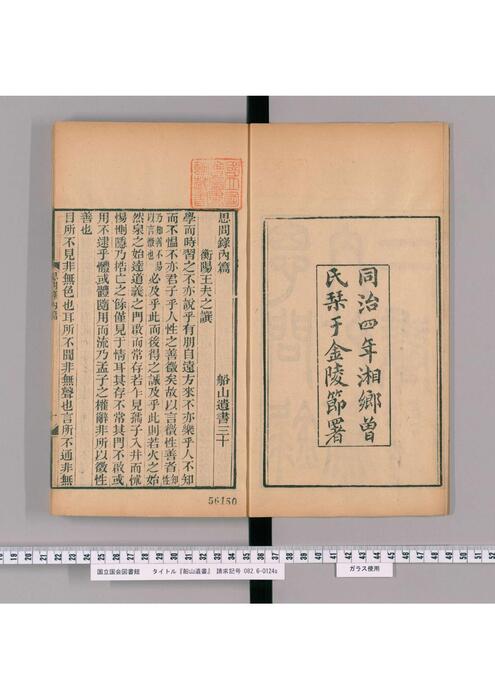 同治四年湘鄉曾
氏栞于金陵節署
思問錄內篇 船山遺書三十
衡陽王夫之譔
學而時習之不亦說乎有朋自遠方來不亦樂乎人不知
而不慍不亦君子乎人性之善徵矣故以言徵性善者知性
乃知善不易以言徵也必及乎此而後得之誠及乎此則若火之始
然泉之始達道義之門啟而常存若乍見孺子入井而怵
惕惻隱乃梏亡之餘僅見于情耳其存不常其門不啟或
用不逮乎體或體隨用而流乃孟子之權辭非所以徵性
善也
目所不見非無色也耳所不聞非無聲也言所不通非無
思問錄內篇
一
56150
国立国会図書館 タイトル『船山遺書』 請求記号 082.6-0124s
ガラス使用